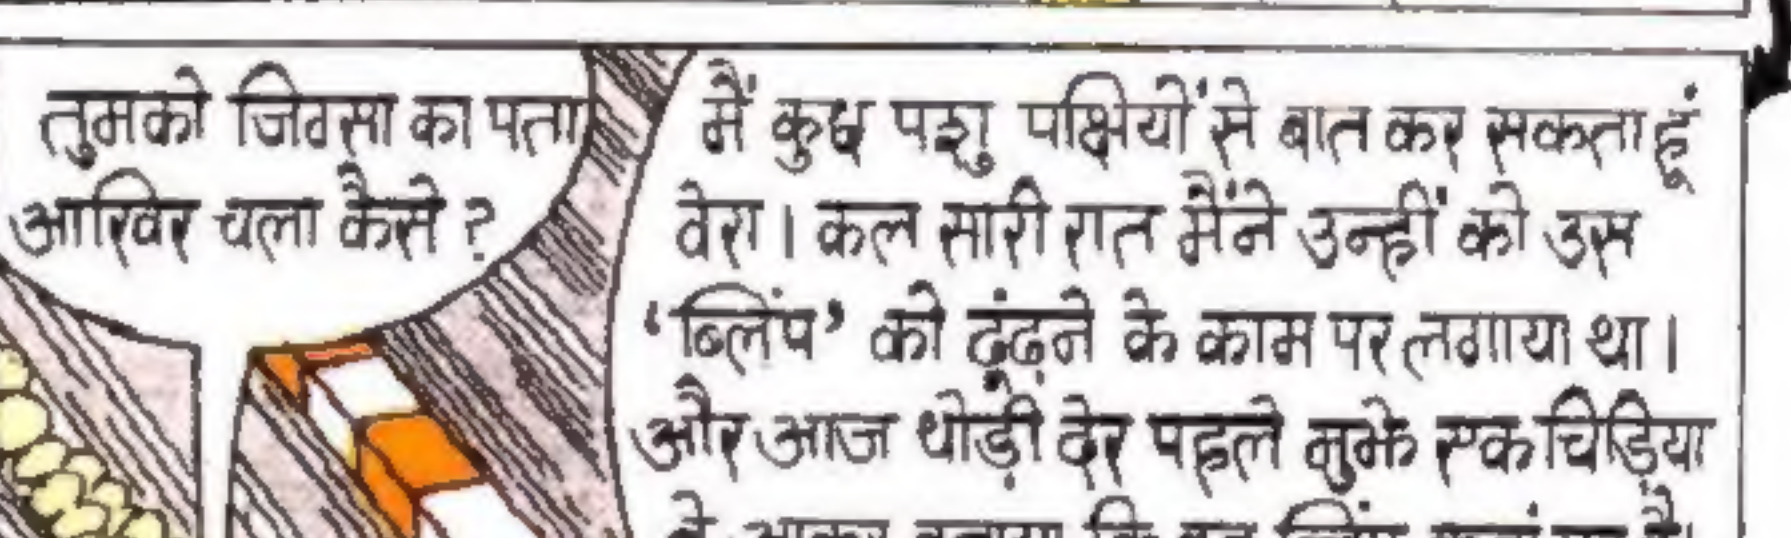 तुमको जिग्सा का पता
आखिर चला कैसे ?
मैं कुछ पशु पक्षियों से बात कर सकता हूं
वेरा । कल सारी रात मैंने उन्हीं को उस
‘ब्लिंप’ को ढूंढ़ने के काम पर लगाया था ।
और आज थोड़ी देर पहले मुझे एक चिड़िया